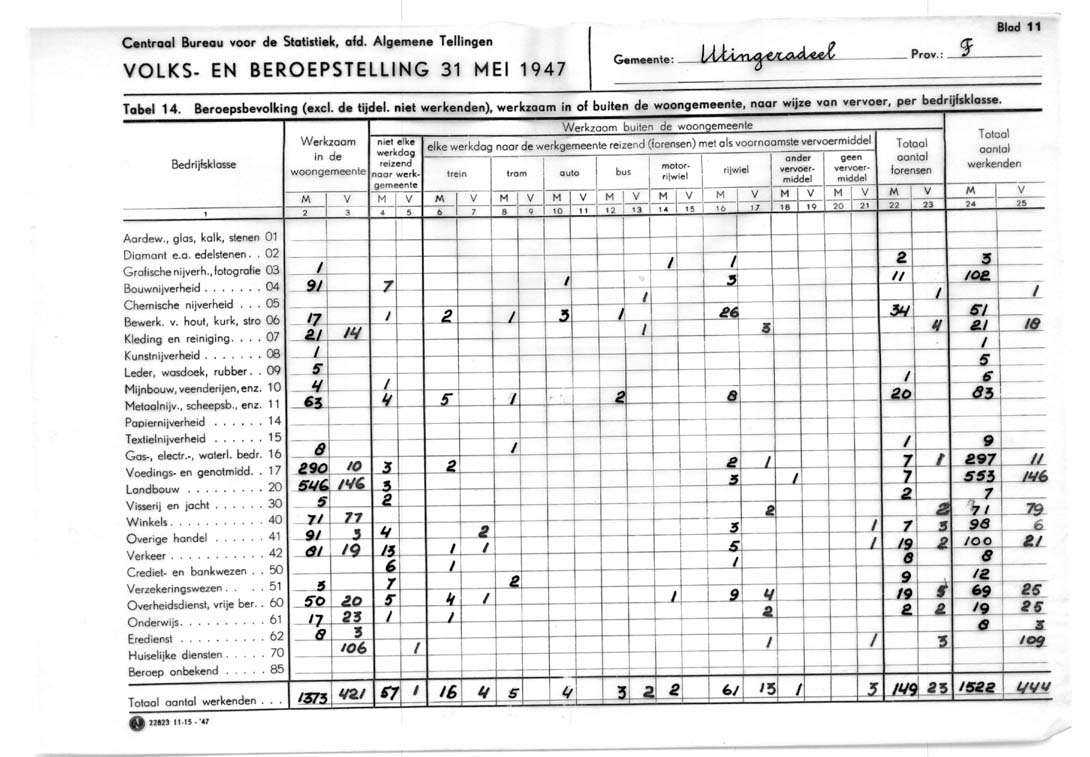 Blad 11
Centraal Bureau voor de Statistiek, afd. Algemene Tellingen
VOLKS- EN BEROEPSTELLING 31 MEI 1947
Gemeente: Utingeradeel Prov.: F
Tabel 14. Beroepsbevolking (excl. de tijdel. niet werkenden), werkzaam in of buiten de woongemeente, naar wijze van vervoer, per bedrijfsklasse.
Bedrijfsklasse
Werkzaam
in de
woongemeente
Werkzaam buiten de woongemeente
niet elke
werkdag
reizend
naar werk-
gemeente
elke werkdag naar de werkgemeente reizend (forensen) met als voornaamste vervoermiddel
trein tram auto bus motor-rijwiel rijwiel ander vervoer-middel geen vervoer-middel
Totaal
aantal
forensen
Totaal
aantal
werkenden
M V M V M V M V M V M V M V M V M V M V M V M V
1 2 3 4 5 6 7 8 9 10 11 12 13 14 15 16 17 18 19 20 21 22 23 24 25
Aardew., glas, kalk, stenen 01
Diamant e.a. edelstenen . . 02
Grafische nijverh., fotografie 03 1 1 1 2 3
Bouwnijverheid . . . . . . . 04 91 7 1 3 11 102
Chemische nijverheid . . . 05 1 1 1
Bewerk. v. hout, kurk, stro 06 17 1 2 1 3 1 26 34 51
Kleding en reiniging. . . . 07 21 14 1 3 4 21 18
Kunstnijverheid . . . . . . . 08 1 1
Leder, wasdoek, rubber. . 09 5 5
Mijnbouw, veenderijen, enz. 10 4 1 1
Metaalnijv., scheepsb., enz. 11 63 4 5 1 2 8 20 83
Papiernijverheid . . . . . . 14
Textielnijverheid . . . . . . 15
Gas-, electr.-, waterl. bedr. 16 8 1 1 9
Voedings- en genotmidd. . 17 290 10 3 2 2 1 7 1 297 11
Landbouw . . . . . . . . . 20 546 146 3 3 1 7 553 146
Visserij en jacht . . . . . . 30 5 2 2 7
Winkels . . . . . . . . . . . 40 71 77 2 2 71 79
Overige handel . . . . . . 41 91 3 4 2 3 1 7 3 98 6
Verkeer . . . . . . . . . . . 42 81 19 13 1 1 5 1 19 2 100 21
Crediet- en bankwezen . . 50 6 1 1 8 8
Verzekeringswezen . . . . 51 3 7 2 9 12
Overheidsdienst, vrije ber. . 60 50 20 5 4 1 1 9 4 19 5 69 25
Onderwijs. . . . . . . . . . 61 17 23 1 1 2 2 2 19 25
Eredienst . . . . . . . . . . 62 8 3 8 3
Huiselijke diensten . . . . . 70 106 1 1 1 3 109
Beroep onbekend . . . . . 85
Totaal aantal werkenden . . . 1373 421 57 1 16 4 5 4 3 2 2 61 13 1 3 149 23 1522 444
22823 11-15 - '47